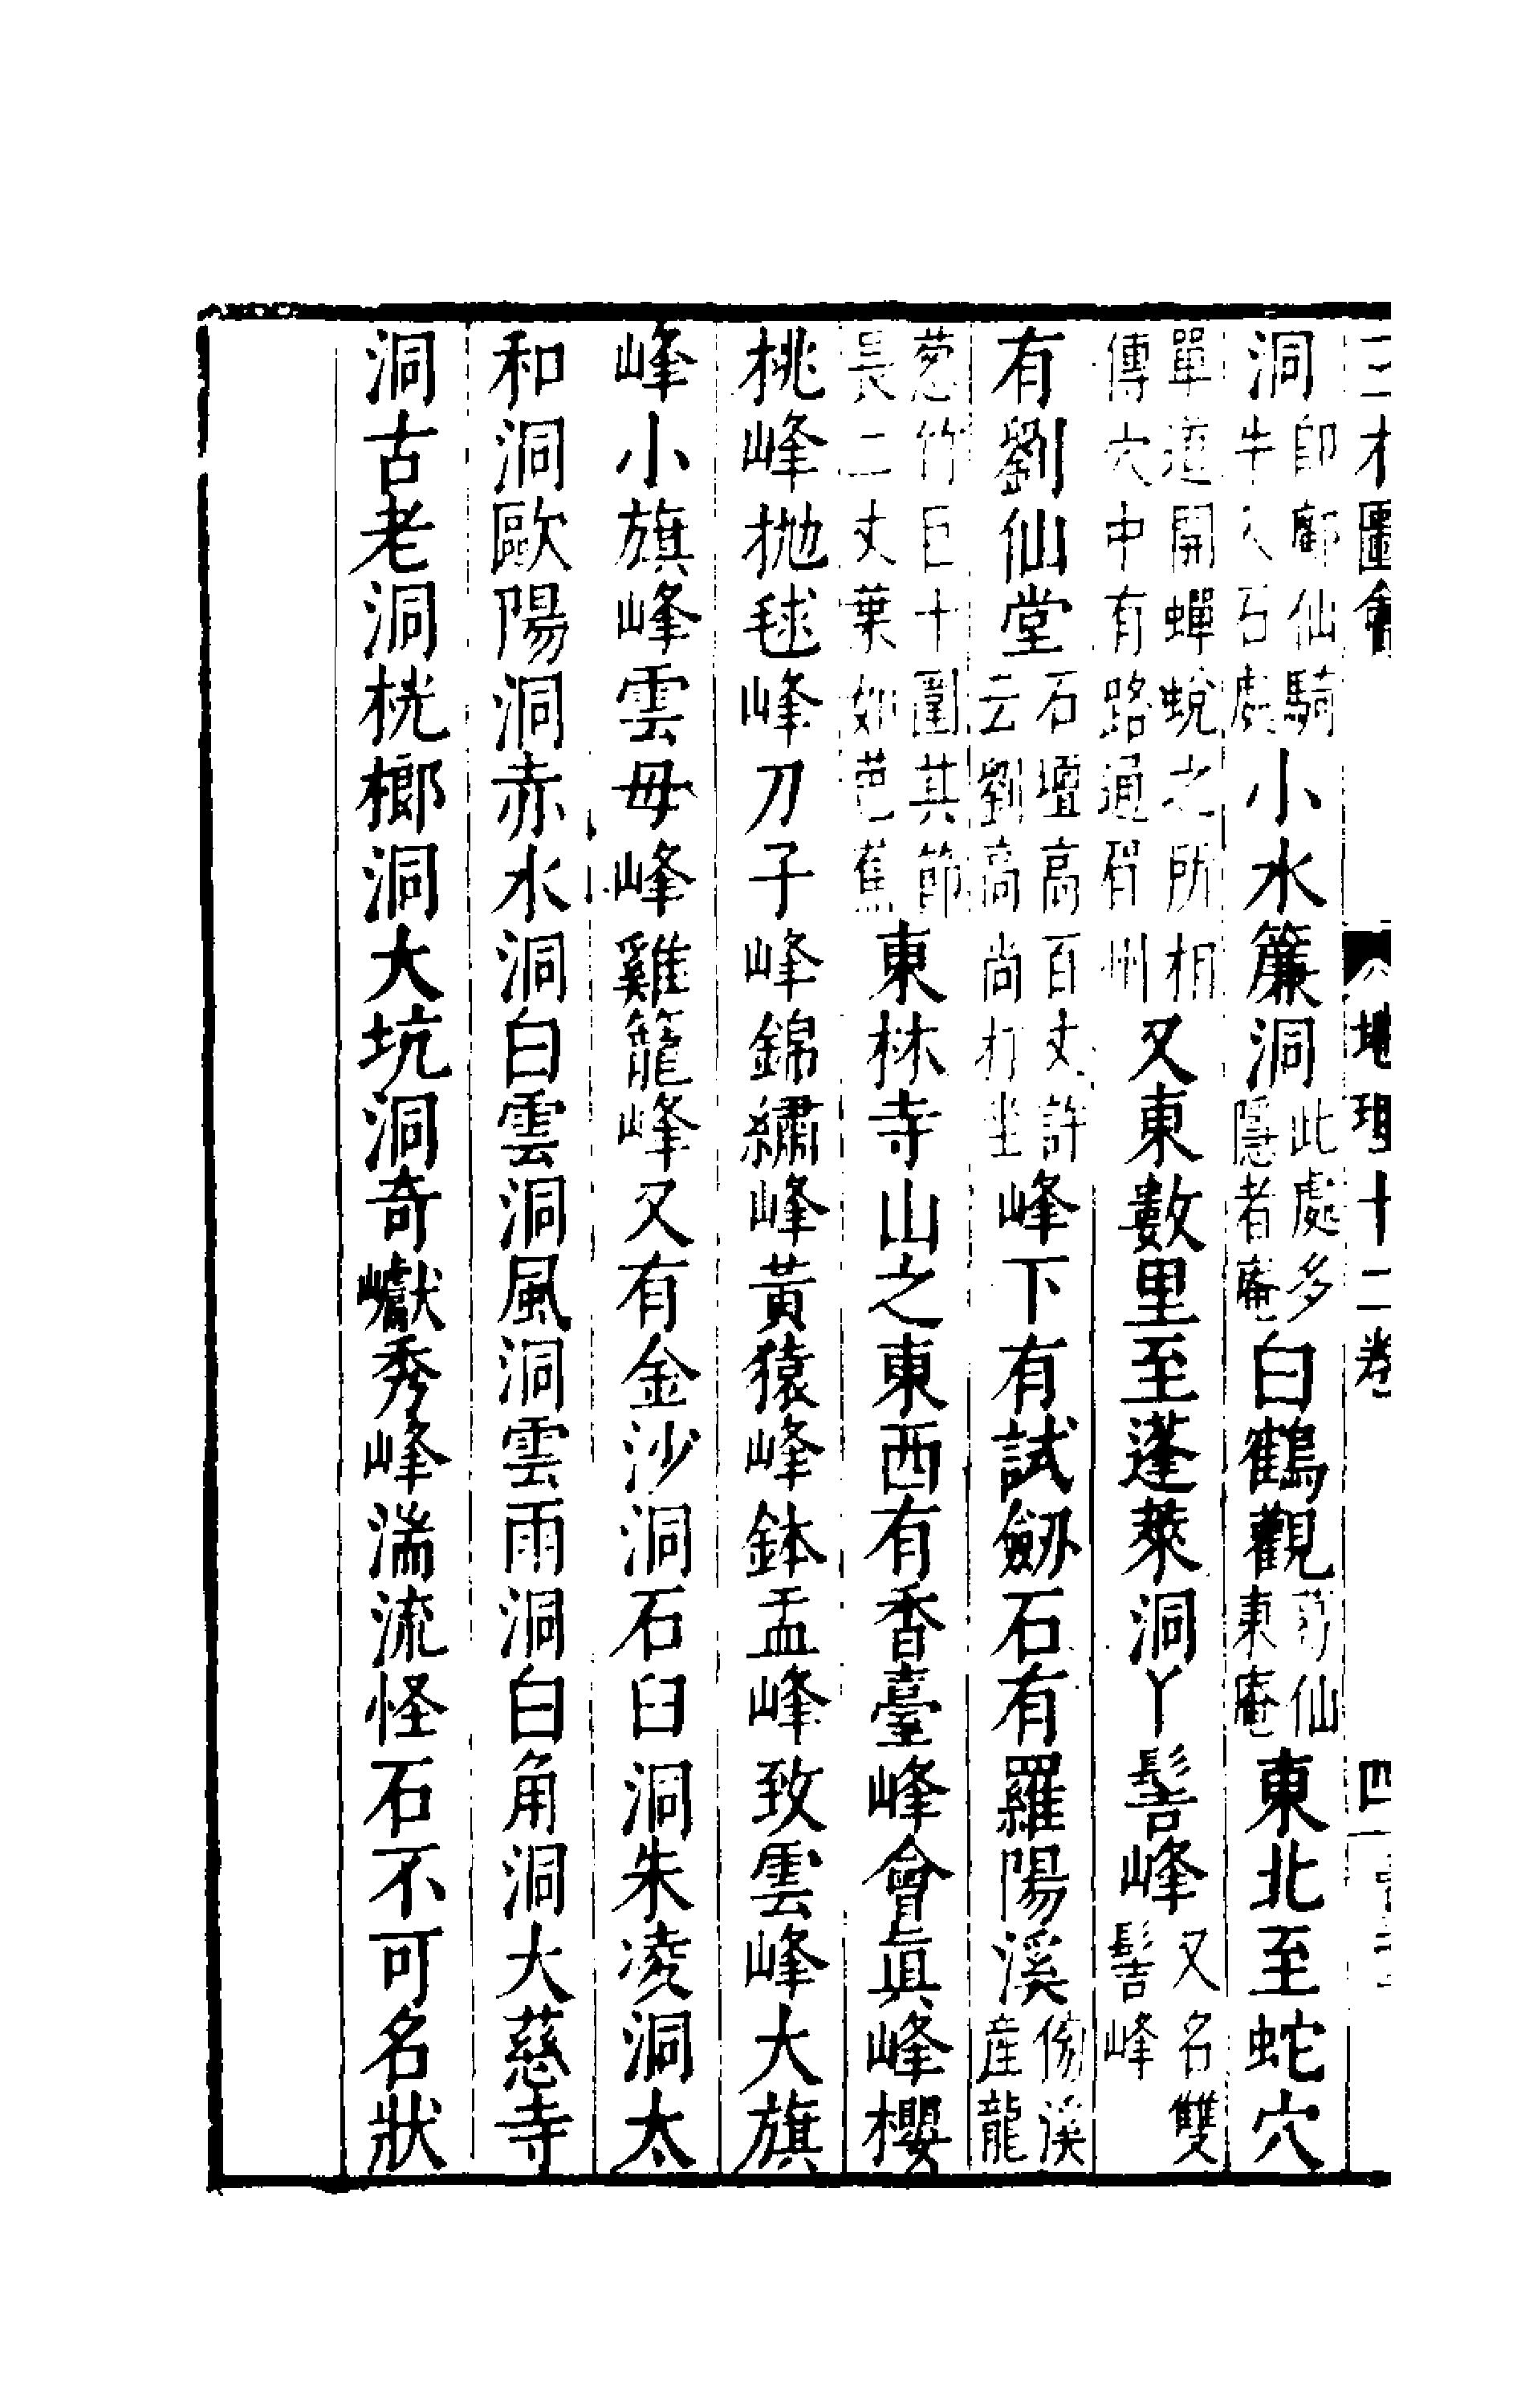 三才圖會 地理十二卷 四
洞即鄺仙騎牛入石處小水簾洞此處多隱者庵白鶴觀葛仙東庵東北至蛇穴
單道開蟬蛻之所相傳穴中有路通循州又東數里至蓬萊洞丫髻峰又名雙髻峰
有劉仙堂石壇高百丈許云劉高尚打坐峰下有試劒石有羅陽溪傍溪産龍
葱竹巨十圍其節長二丈葉如芭蕉東林寺山之東西有香臺峰會眞峰櫻
桃峰拋毬峰刀子峰錦繡峰黃猿峰鉢盂峰致雲峰大旗
峰小旗峰雲母峰雞籠峰又有金沙洞石臼洞朱凌洞太
和洞歐陽洞赤水洞白雲洞風洞雲雨洞白角洞大慈寺
洞古老洞桄榔洞大坑洞奇巘秀峰湍流怪石不可名狀